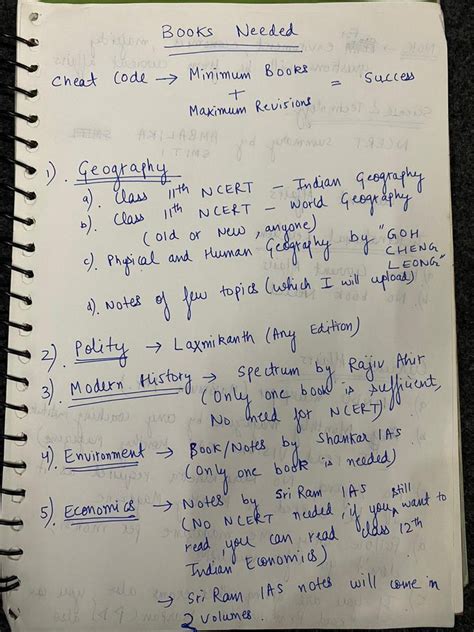 Books Needed
Cheat Code → Minimum Books
+
Maximum Revisions
= Success
1). Geography
a). Class 11th NCERT - Indian Geography
b). Class 11th NCERT - World Geography
(Old or New, anyone)
c). Physical and Human Geography by "GOH
CHENG
LEONG"
d). Notes of few topics (which I will upload)
2). Polity → Laxmikanth (Any Edition)
3). Modern History → Spectrum by Rajiv Ahir
(Only one book is sufficient,
No need for NCERT)
4). Environment → Book/Notes by Shankar IAS
(Only one book is needed)
5). Economics → Notes by Sri Ram IAS
(No NCERT needed, if you still want to
read, you can read class 12th
Indian Economics)
→ Sri Ram IAS notes will come in
2 volumes.